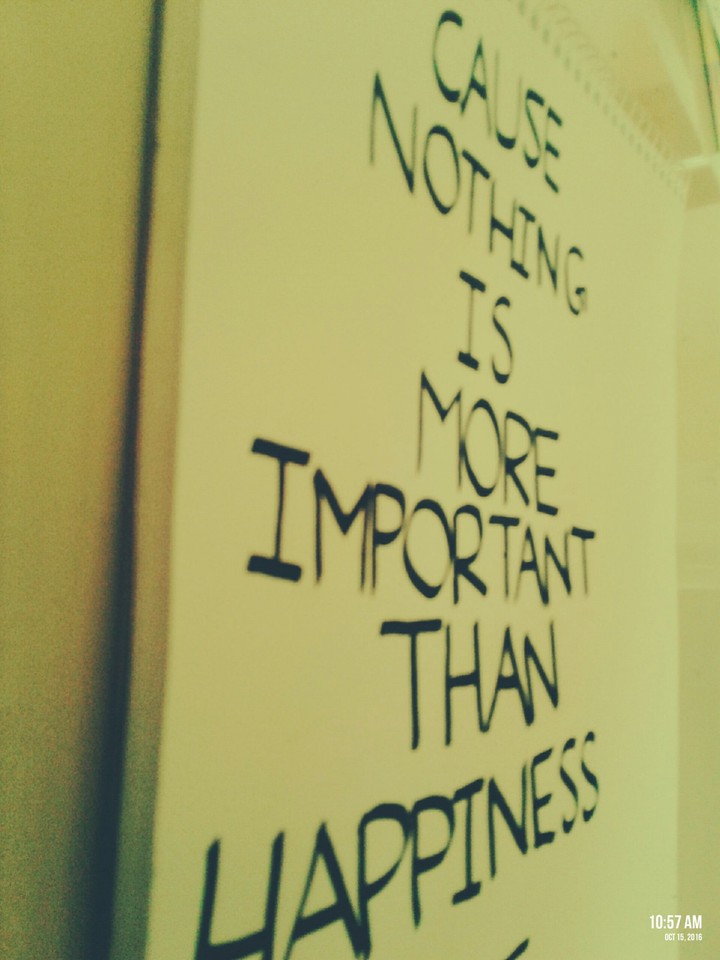 CAUSE
NOTHING
IS
MORE
IMPORTANT
THAN
HAPPINESS
10:57 AM
OCT 15, 2016